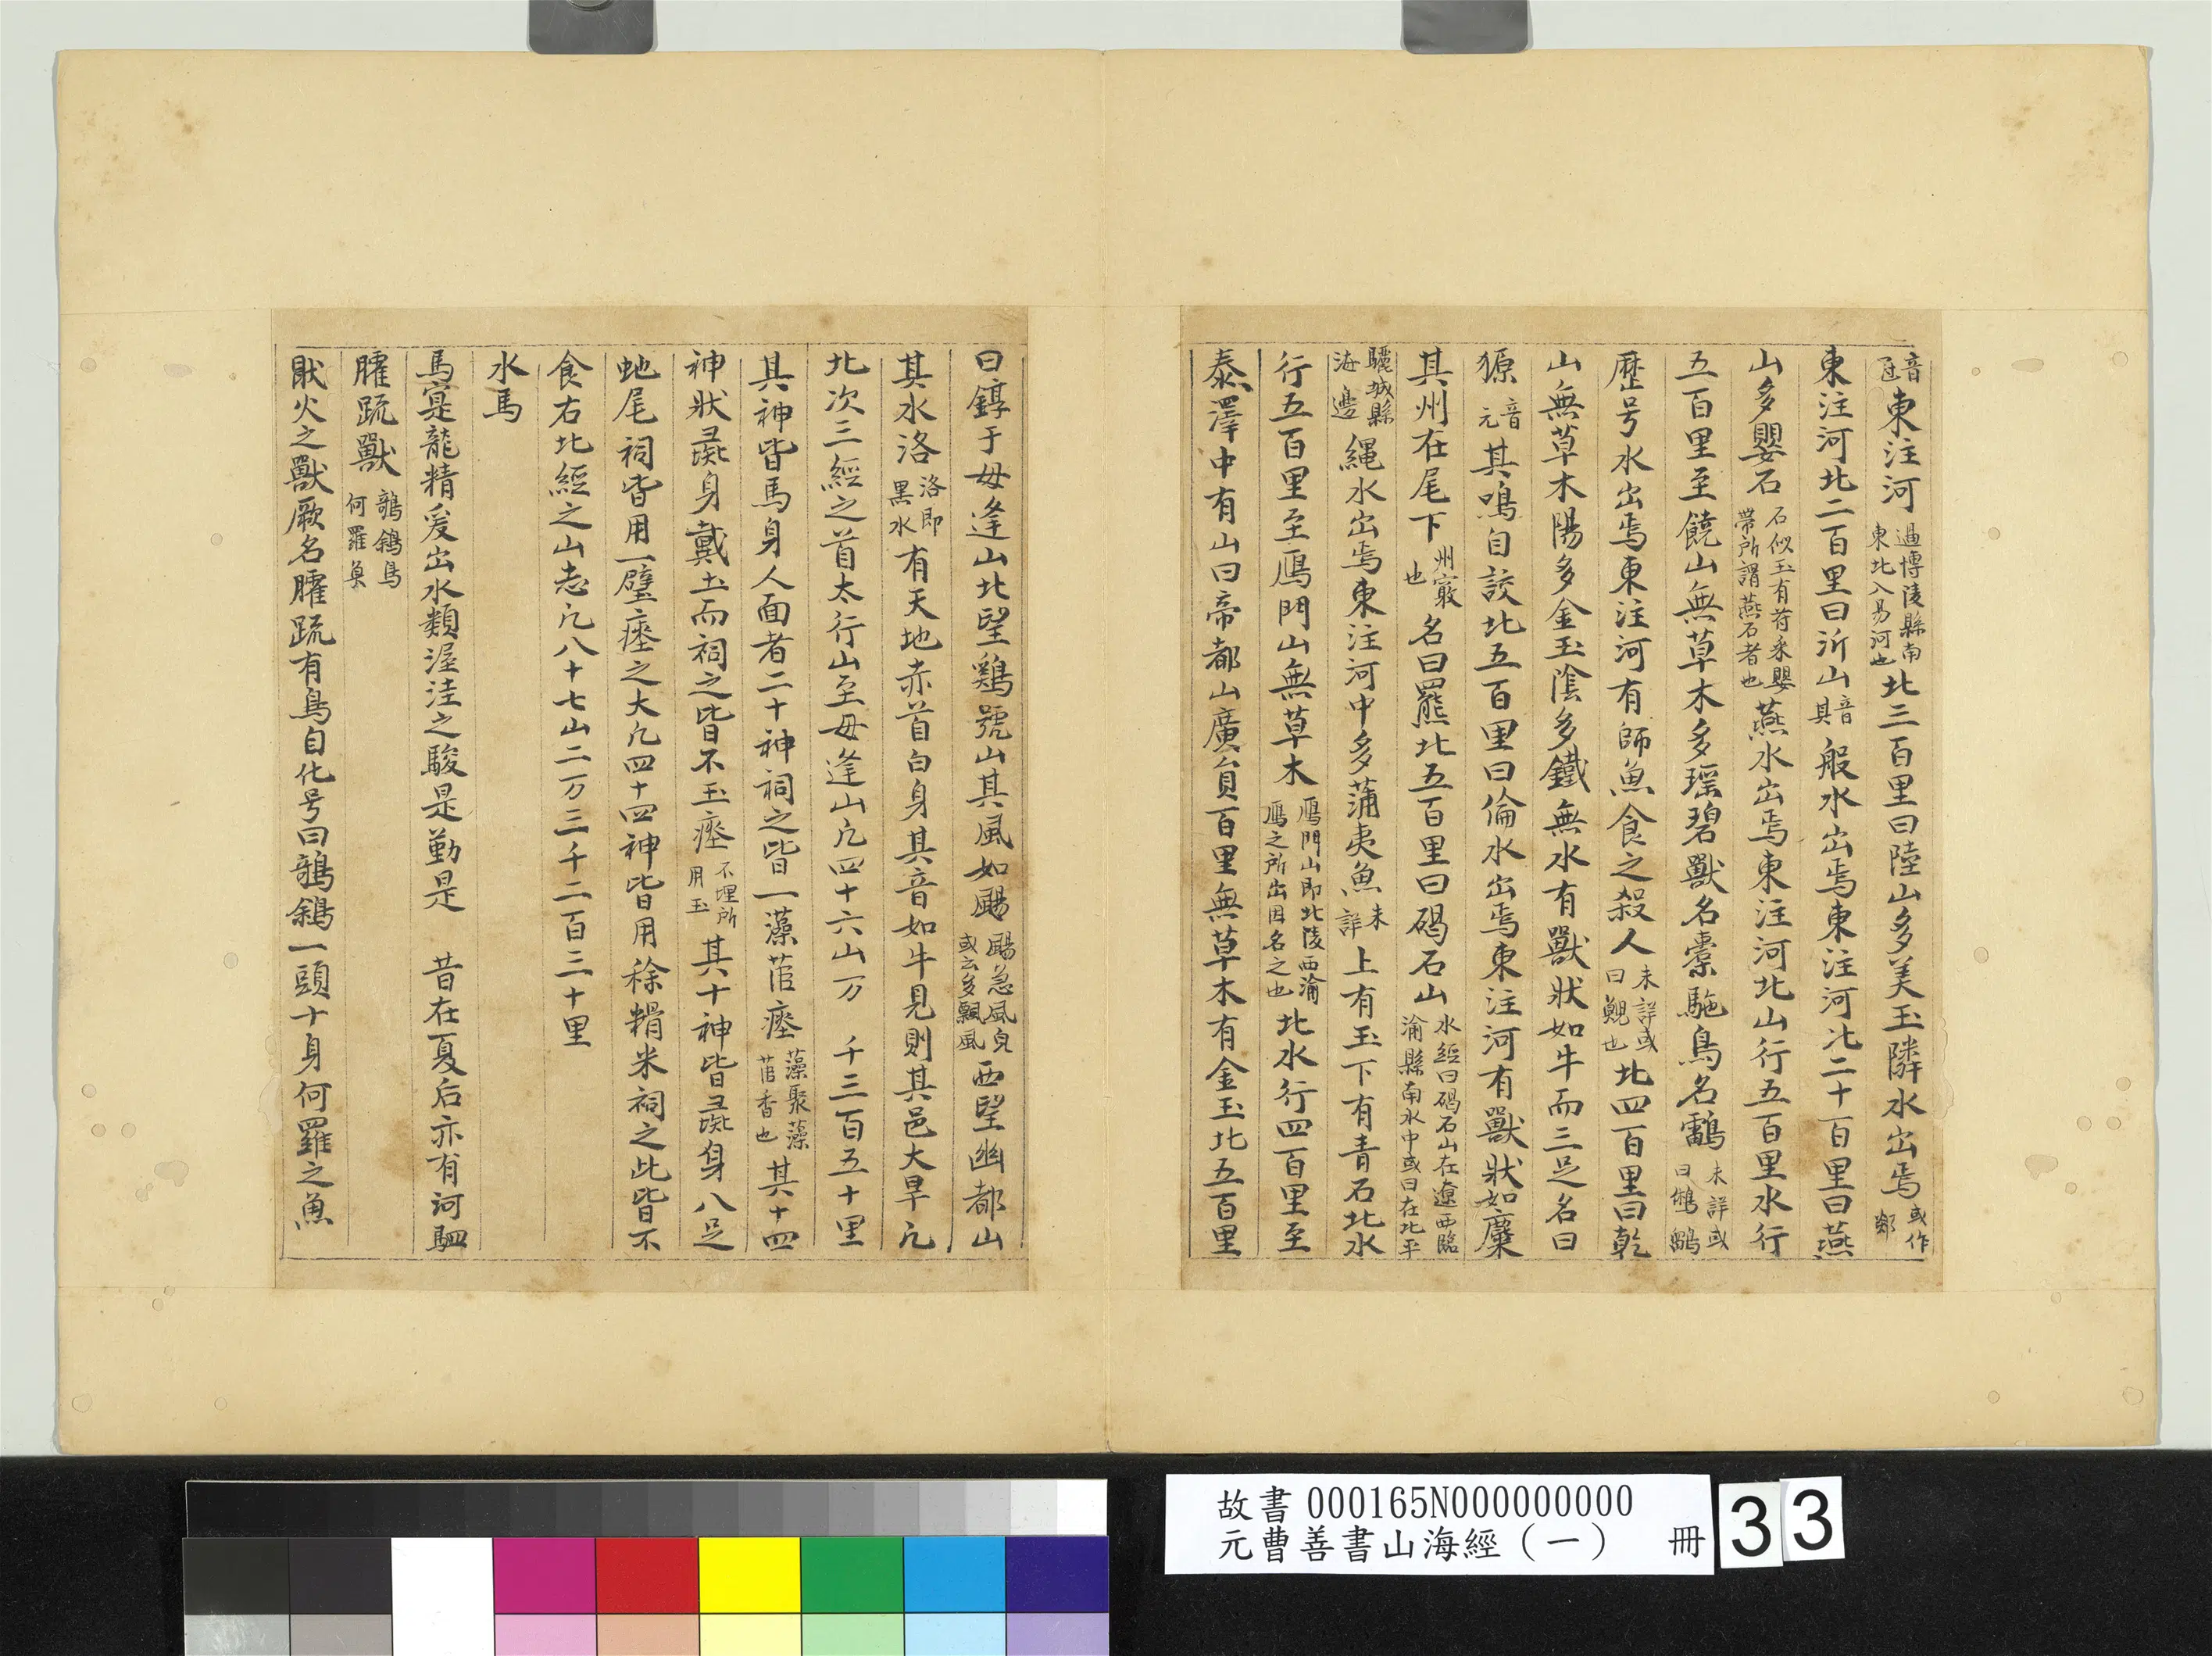 音㔷東注河過博陵縣南東北入易河也北三百里曰陸山多美玉隣水出焉或作鄒
東注河北二百里曰沂山音其般水出焉東注河北二十百里曰燕
山多嬰石石似玉有苻采嬰帶所謂燕石者也燕水出焉東注河北山行五百里水行
五百里至饒山無草木多瑶碧獸名橐駞鳥名鷊未詳或曰鵂鶹
歷号水出焉東注河有師魚食之殺人未詳或曰鯢也北四百里曰乾
山無草木陽多金玉陰多鐵無水有獸狀如牛而三足名曰
獂音元其鳴自詨北五百里曰倫水出焉東注河有獸狀如麋
其州在尾下州竅也名曰羆北五百里曰碣石山水經曰碣石山在遼西臨渝縣南水中或曰在北平
驪城縣海邊繩水出焉東注河中多蒲夷魚未詳上有玉下有青石北水
行五百里至鴈門山無草木鴈門山即北陵西瀹鴈之所出因名之也北水行四百里至
泰澤中有山曰帝都山廣員百里無草木有金玉北五百里
曰錞于毋逢山北望鷄號山其風如颺颺急風皃或云多飄風西望幽都山
其水洛洛即黒水有天地赤首白身其音如牛見則其邑大旱凢
北次三經之首太行山至毋逢山凢四十六山万 千三百五十里
其神皆馬身人面者二十神祠之皆一藻茝瘞藻聚藻茝香也其十四
神狀彘身戴玉而祠之皆不玉瘞不埋所用玉其十神皆彘身八足
虵尾祠皆用一璧瘞之大凢四十四神皆用稌糈米祠之此皆不
食右北經之山志凢八十七山二万三千二百三十里
水馬
馬寔龍精爰出水類渥洼之駿是勤是 昔在夏后亦有河駟
䑏疏獸鶅鵨鳥何羅魚
猒火之獸厥名䑏疏有鳥自化号曰鶅鵨一頭十身何羅之魚
故書000165N000000000
元曹善書山海經（一） 冊 33